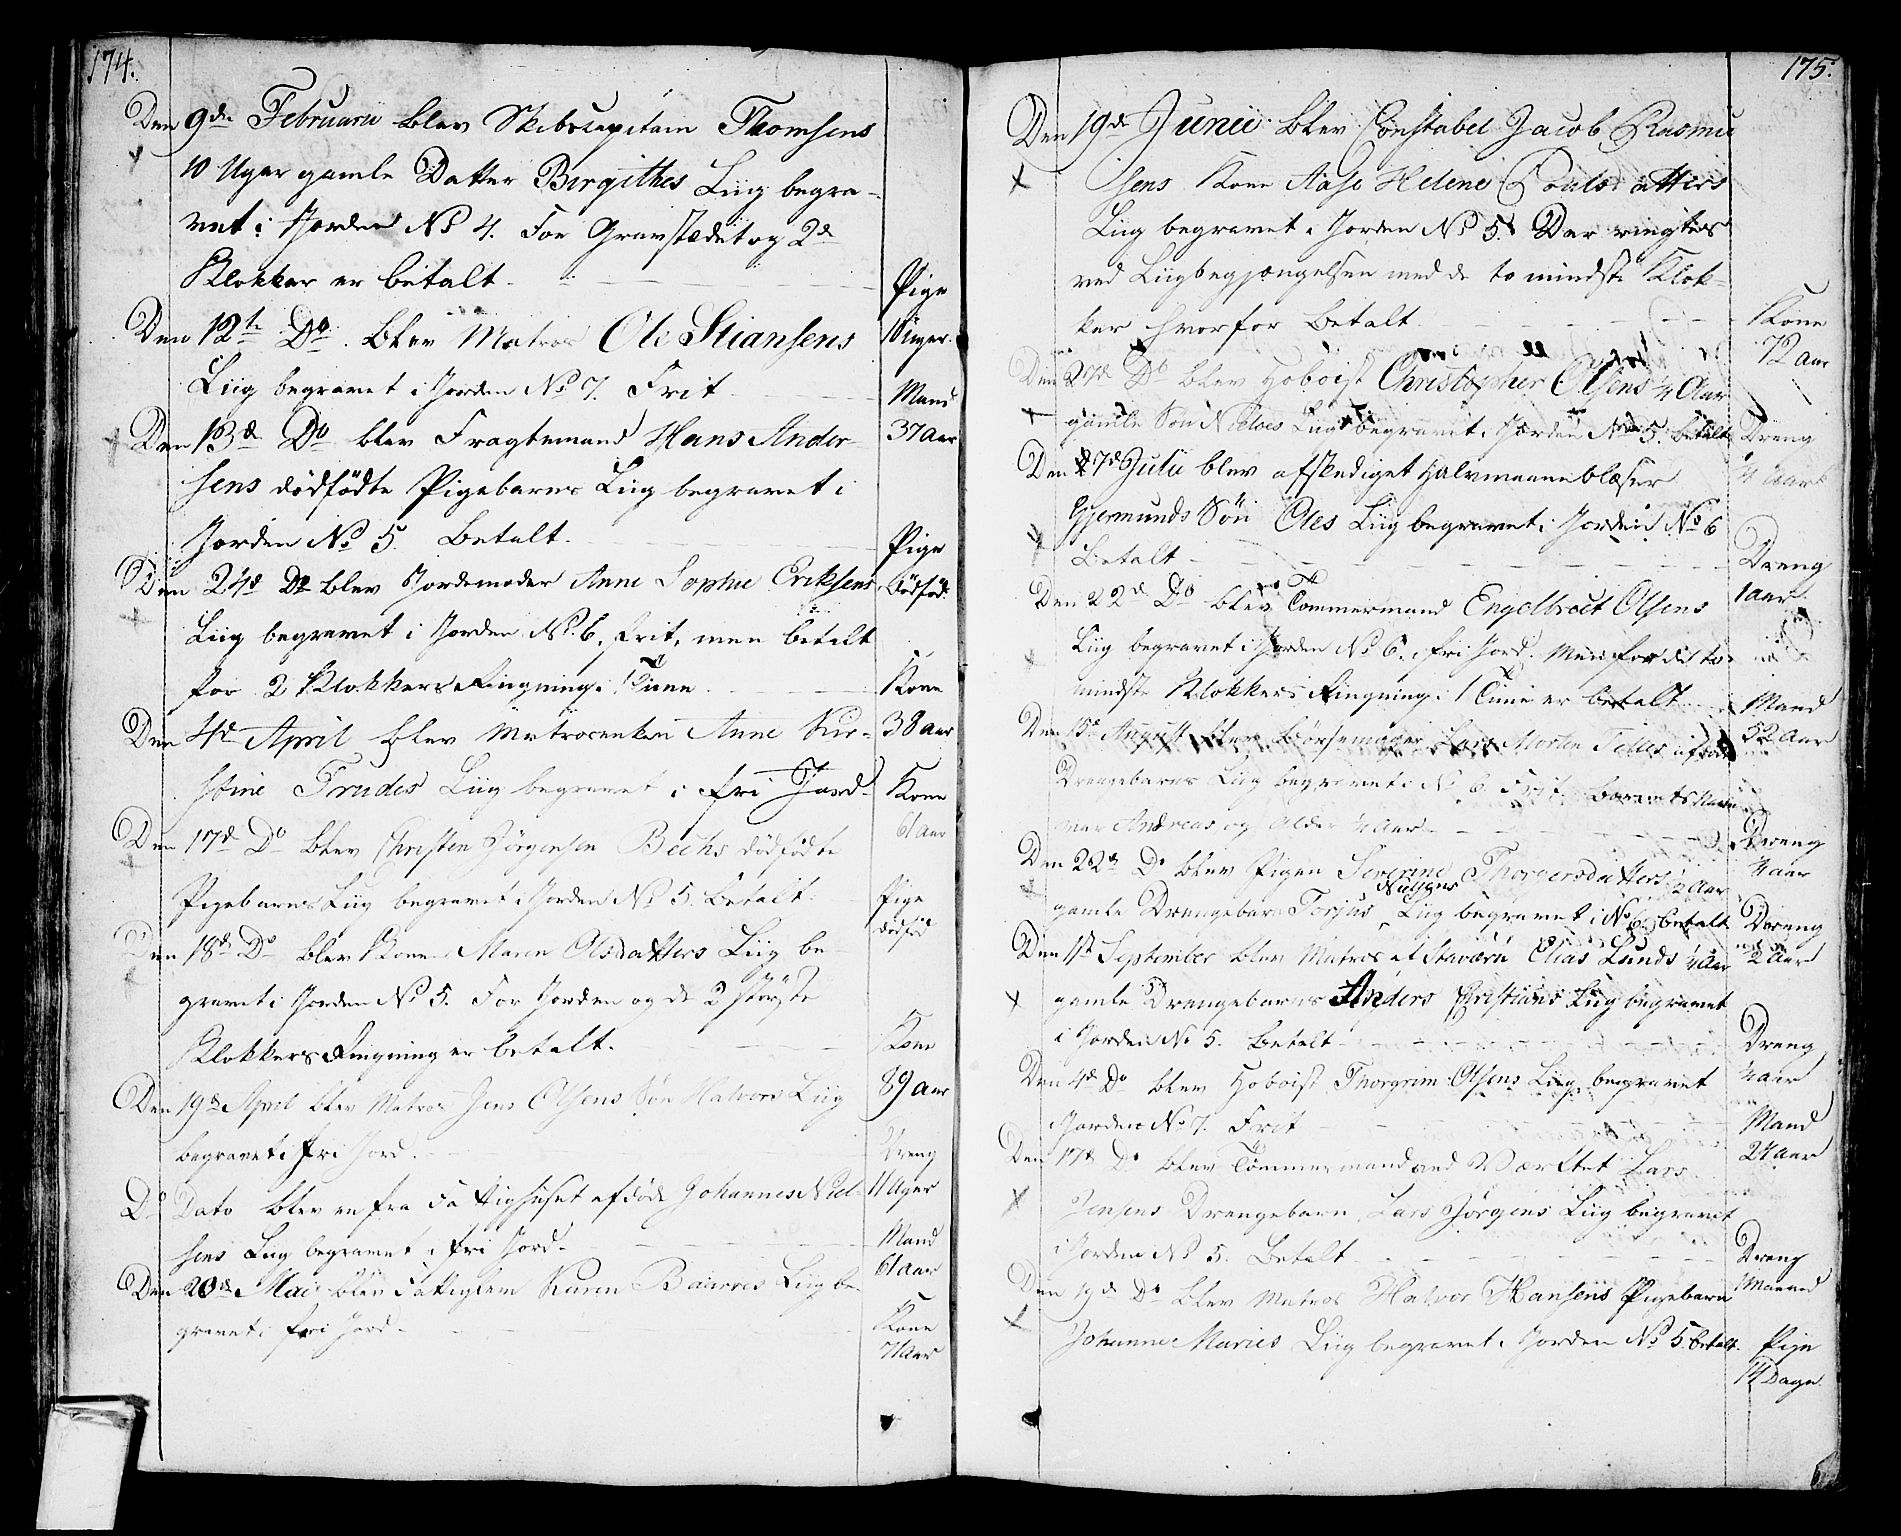 174.
Den 9de Februarii blev Skibscapitain Thomsens
10 Uger gamle Datter Birgithes Liig begra-
vet i Jorden No 4. For Gravstædet og 2de
Klokker er betalt.
Pige
10 Uger.
Den 12te Do. blev Matros Ole Stiansens
Liig begravet i Jorden No 7. Frit
Mand
37 Aar
Den 13de Do blev Fragtemand Hans Ander-
sens dödfödte Pigebarns Liig begravet i
Jorden No 5. Betalt.
Pige
dödföd.
Den 24de Do blev Jordemoder Anne Sophie Eriksens
Liig begravet i Jorden No 6. frit, men betalt
for 2 Klokkers Ringning i 1 Time
Kone
38 Aar
Den 4de April blev Matrosenken Anne Kir-
stine Trudes Liig begravet i fri Jord.
Kone
61 Aar
Den 17de Do blev Christen Jörgensen Bechs dödfödte
Pigebarns Liig begravet i Jorden No 5. Betalt.
Pige
dödföd
Den 18de Do blev Kone Maren Olsdatters Liig be-
gravet i Jorden No 5. For Jorden og de 2 störste
Klokkers Ringning er betalt.
Kone
89 Aar
Den 19de April blev Matros Jens Olsens Sön Halvors Liig
begravet i fri Jord.
Dreng
11 Uger
Do Dato blev en fra Fattighuset afdöde Johannes Niel-
sens Liig begravet i fri Jord.
Mand
61 Aar
Den 20de Mai blev Fattiglem Karen Liig be-
gravet i fri Jord.
Kone
71 Aar
175.
Den 19de Junii blev Constabel Jacob Rasmu
sens Kone Aase Helene Poulsdatters
Liig begravet i Jorden No 5. Der ringtes
ved Liigbegjængelsen med de to mindste Klok-
ker hvorfor betalt.
Kone
72 Aar
Den 27de Do blev Hoboist Christopher Olsens 1/4 Aar
gamle Sön Liig begravet i Jorden No 5. betalt
Dreng
1/4 Aar
Den 7de Julii blev afskediget Halvmaaneblæser
Gjermunds Sön Oles Liig begravet i Jorden No 6
Betalt
Dreng
1 Aar.
Den 22de Do blev Tömmermand Engelbrect Olsens
Liig begravet i Jorden No 6. i fri Jord. Men for de to
mindste Klokkers Ringning i 1 Time er betalt
Mand
52 Aar
Den August blev Börsemager Lars Morten
Drengebarns Liig begravet i No 6. Frit. Barnets Navn
var Andreas og Alder 1/4 Aar
Dreng
1/4 Aar
Den 22de Do blev Pigen Severine Thorersdatters 1/2 Aar
gamle Drengebarn Torjus Nielsens Liig begravet i No 6. betalt
Dreng
1/2 Aar
Den 1ste September blev Matros af Staværn Elias Lunds 1/4 Aar
gamle Drengebarns Anders Christians Liig begravet
i Jorden No 5. Betalt
Dreng
1/4 Aar
Den 4de Do blev Hoboist Thorgrim Olsens Liig begravet
i Jorden No 7. Frit
Mand
24 Aar
Den 17de Do blev Tömmermand ved Værftet Lars
Jensens Drengebarn Lars Jörgens Liig begravet
i Jorden No 5. Betalt
Dreng
1 Maaned
Den 19de Do blev Matros Halvor Hansens Pigebarn
Johanne Maries Liig begravet i Jorden No 5. betalt.
Pige
14 Dage.